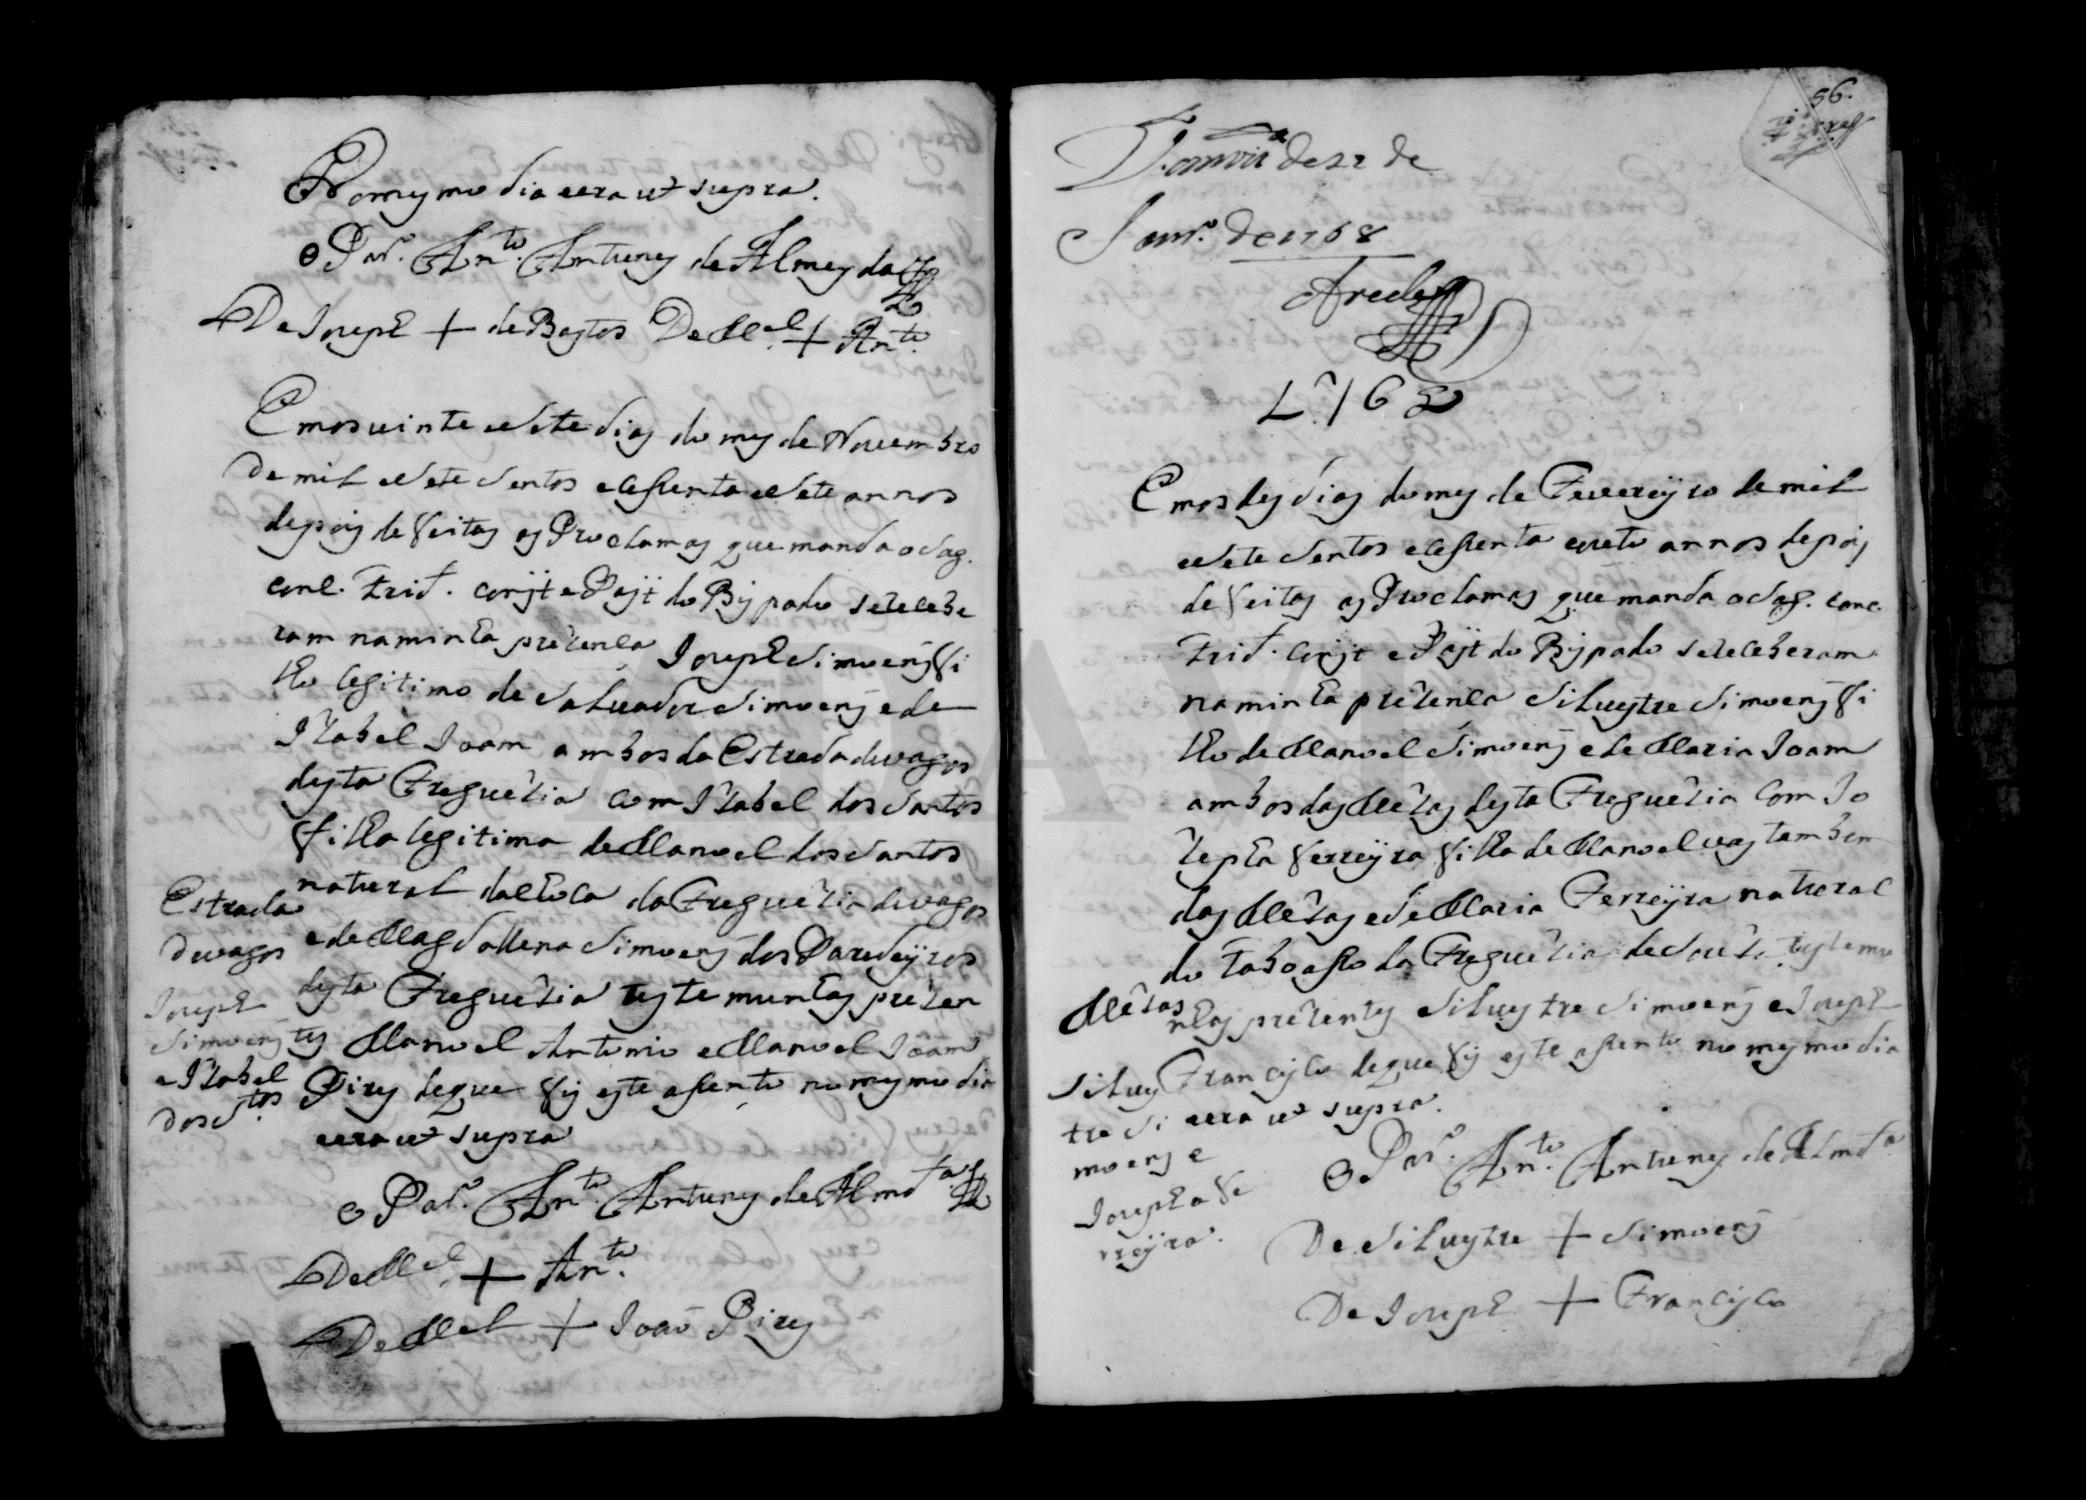 No mesmo dia eera ut supra.
O Par.º Ant.º Antunes de Almeyda
De Joseph + de Bastos De M.el + Ant.º
Em os uinte e Sete dias do mes de Nouembro
de mil e Sete Sentos e Cesenta e Sete annos
depois de feitas as Proclamas que manda o Sag.
Conc. Trid. Conste e Past do Bispado Se receBe
ram na minha prezença Joseph Simoens fi
lho legitimo de Saluador Simoens e de
Izabel Joam amBos da Estrada de vagos
desta Freguezia com Izabel dos Santos
filha legitima de Manoel dos Santos
natural da Choca da Freguezia de vagos
e de Magdallena Simoens dos Paredeyros
desta Freguezia testemunhas prezen
tes Manoel Antonio e Manoel Joam
Pires de que fis este asento no mesmo dia
eera ut supra
Estrada
de vagos
Joseph
Simoens
e Izabel
dos S.tos
O Par.º Ant.º Antunes de Almd.ª
De M.el + Ant.º
De M.el + Joaõ Pires
56.
de 22 de
Janr.º de 1768
Arede
1768
Em os des dias do mes de Fevereyro de mil
e Sete Sentos e Cesenta e outo annos depois
de feitas as Proclamas que manda o Sag. Conc.
Trid. Const e Past do Bispado Se receBeram
na minha prezença Siluestre Simoens fi
lho de Manoel Simoens e de Maria Joam
amBos das Mezas desta Freguezia Com Jo
zepha ferreyra filha de Manoel vas tamBem
das Mezas e de Maria Ferreyra natural
do Taboaso da Freguezia de Souza testemu
nhas prezentes Siluestre Simoens e Joseph
Francisco de que fis este asento no mesmo dia
eera ut supra.
Mezas
Silues
tre Si
moens e
Josepha fe
rreyra.
O Par.º Ant.º Antunes de Almd.ª
De Siluestre + Simoens
De Joseph + Francisco